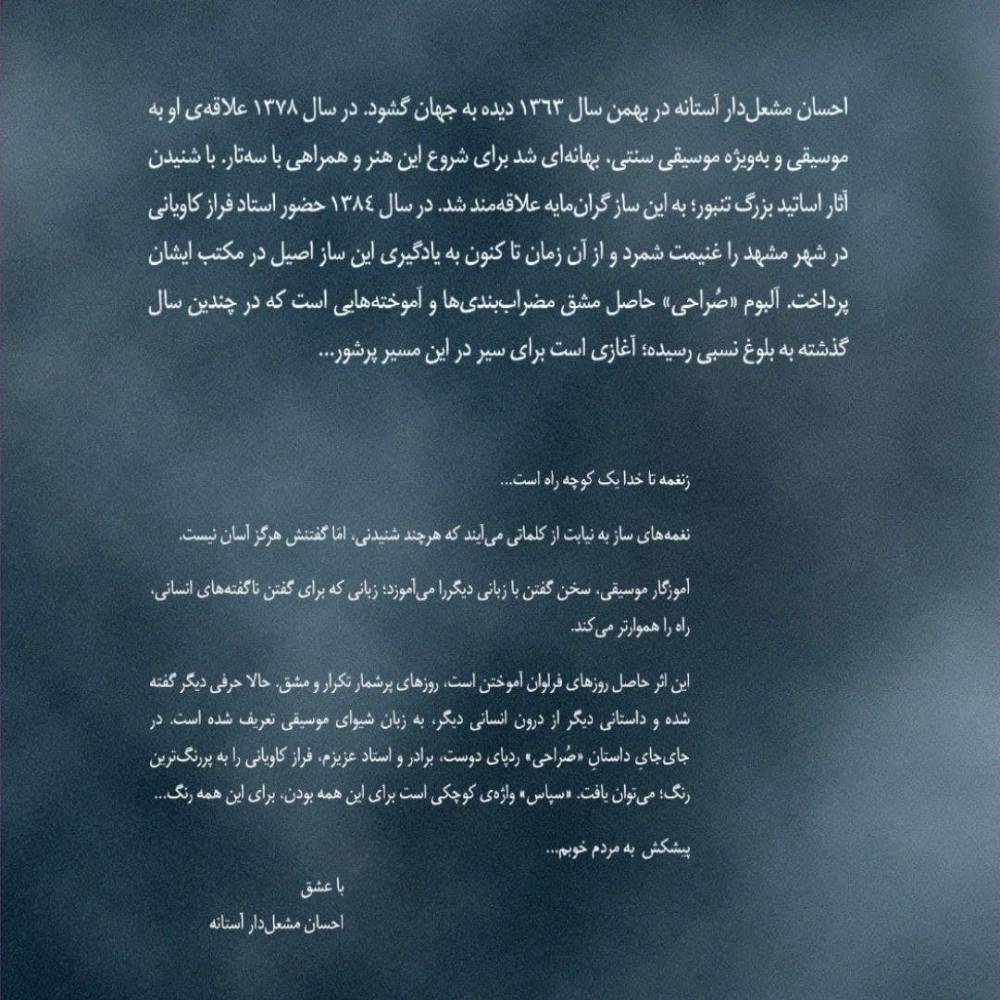 احسان مشعل‌دار آستانه در بهمن سال ۱۳۶۳ دیده به جهان گشود. در سال ۱۳۷۸ علاقه‌ی او به
موسیقی و به‌ویژه موسیقی سنتی، بهانه‌ای شد برای شروع این هنر و همراهی با سه‌تار. با شنیدن
آثار اساتید بزرگ تنبور؛ به این ساز گران‌مایه علاقه‌مند شد. در سال ۱۳۸٤ حضور استاد فراز کاویانی
در شهر مشهد را غنیمت شمرد و از آن زمان تا کنون به یادگیری این ساز اصیل در مکتب ایشان
پرداخت. آلبوم «صُراحی» حاصل مشق مضراب‌بندی‌ها و آموخته‌هایی است که در چندین سال
گذشته به بلوغ نسبی رسیده؛ آغازی است برای سیر در این مسیر پرشور...
زنغمه تا خدا یک کوچه راه است...
نغمه‌های ساز به نیابت از کلماتی می‌آیند که هرچند شنیدنی، امّا گفتنش هرگز آسان نیست.
آموزگار موسیقی، سخن گفتن با زبانی دیگررا می‌آموزد؛ زبانی که برای گفتن ناگفته‌های انسانی،
راه را هموارتر می‌کند.
این اثر حاصل روزهای فراوان آموختن است، روزهای پرشمار تکرار و مشق. حالا حرفی دیگر گفته
شده و داستانی دیگر از درون انسانی دیگر، به زبان شیوای موسیقی تعریف شده است. در
جای‌جایِ داستانِ «صُراحی» ردپای دوست، برادر و استاد عزیزم، فراز کاویانی را به پررنگ‌ترین
رنگ؛ می‌توان یافت. «سپاس» واژه‌ی کوچکی است برای این همه بودن، برای این همه رنگ...
پیشکش به مردم خوبم...
با عشق
احسان مشعل‌دار آستانه